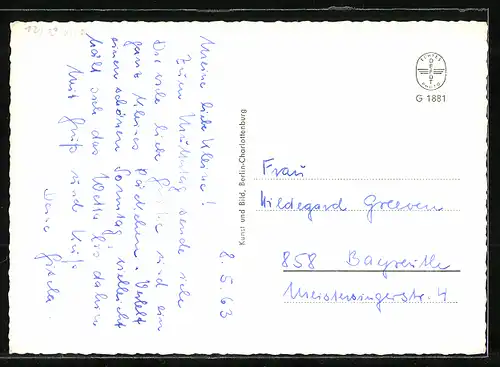 8.5.63
Meine liebe Kleine!
Zum Muttertag sende ich
Dir viele liebe Grüße und ein
ganz kleines Päckchen. Verlebt
einen schönen Sonntag, vielleicht
hält sich das Wetter bis dahin.
Mit Gruß und Kuß
Deine Gisela.
Kunst und Bild, Berlin-Charlottenburg
ECHTES
FOTO
G 1881
Frau
Hildegard Greeven
858 Bayreuth
Meistersingerstr. 4